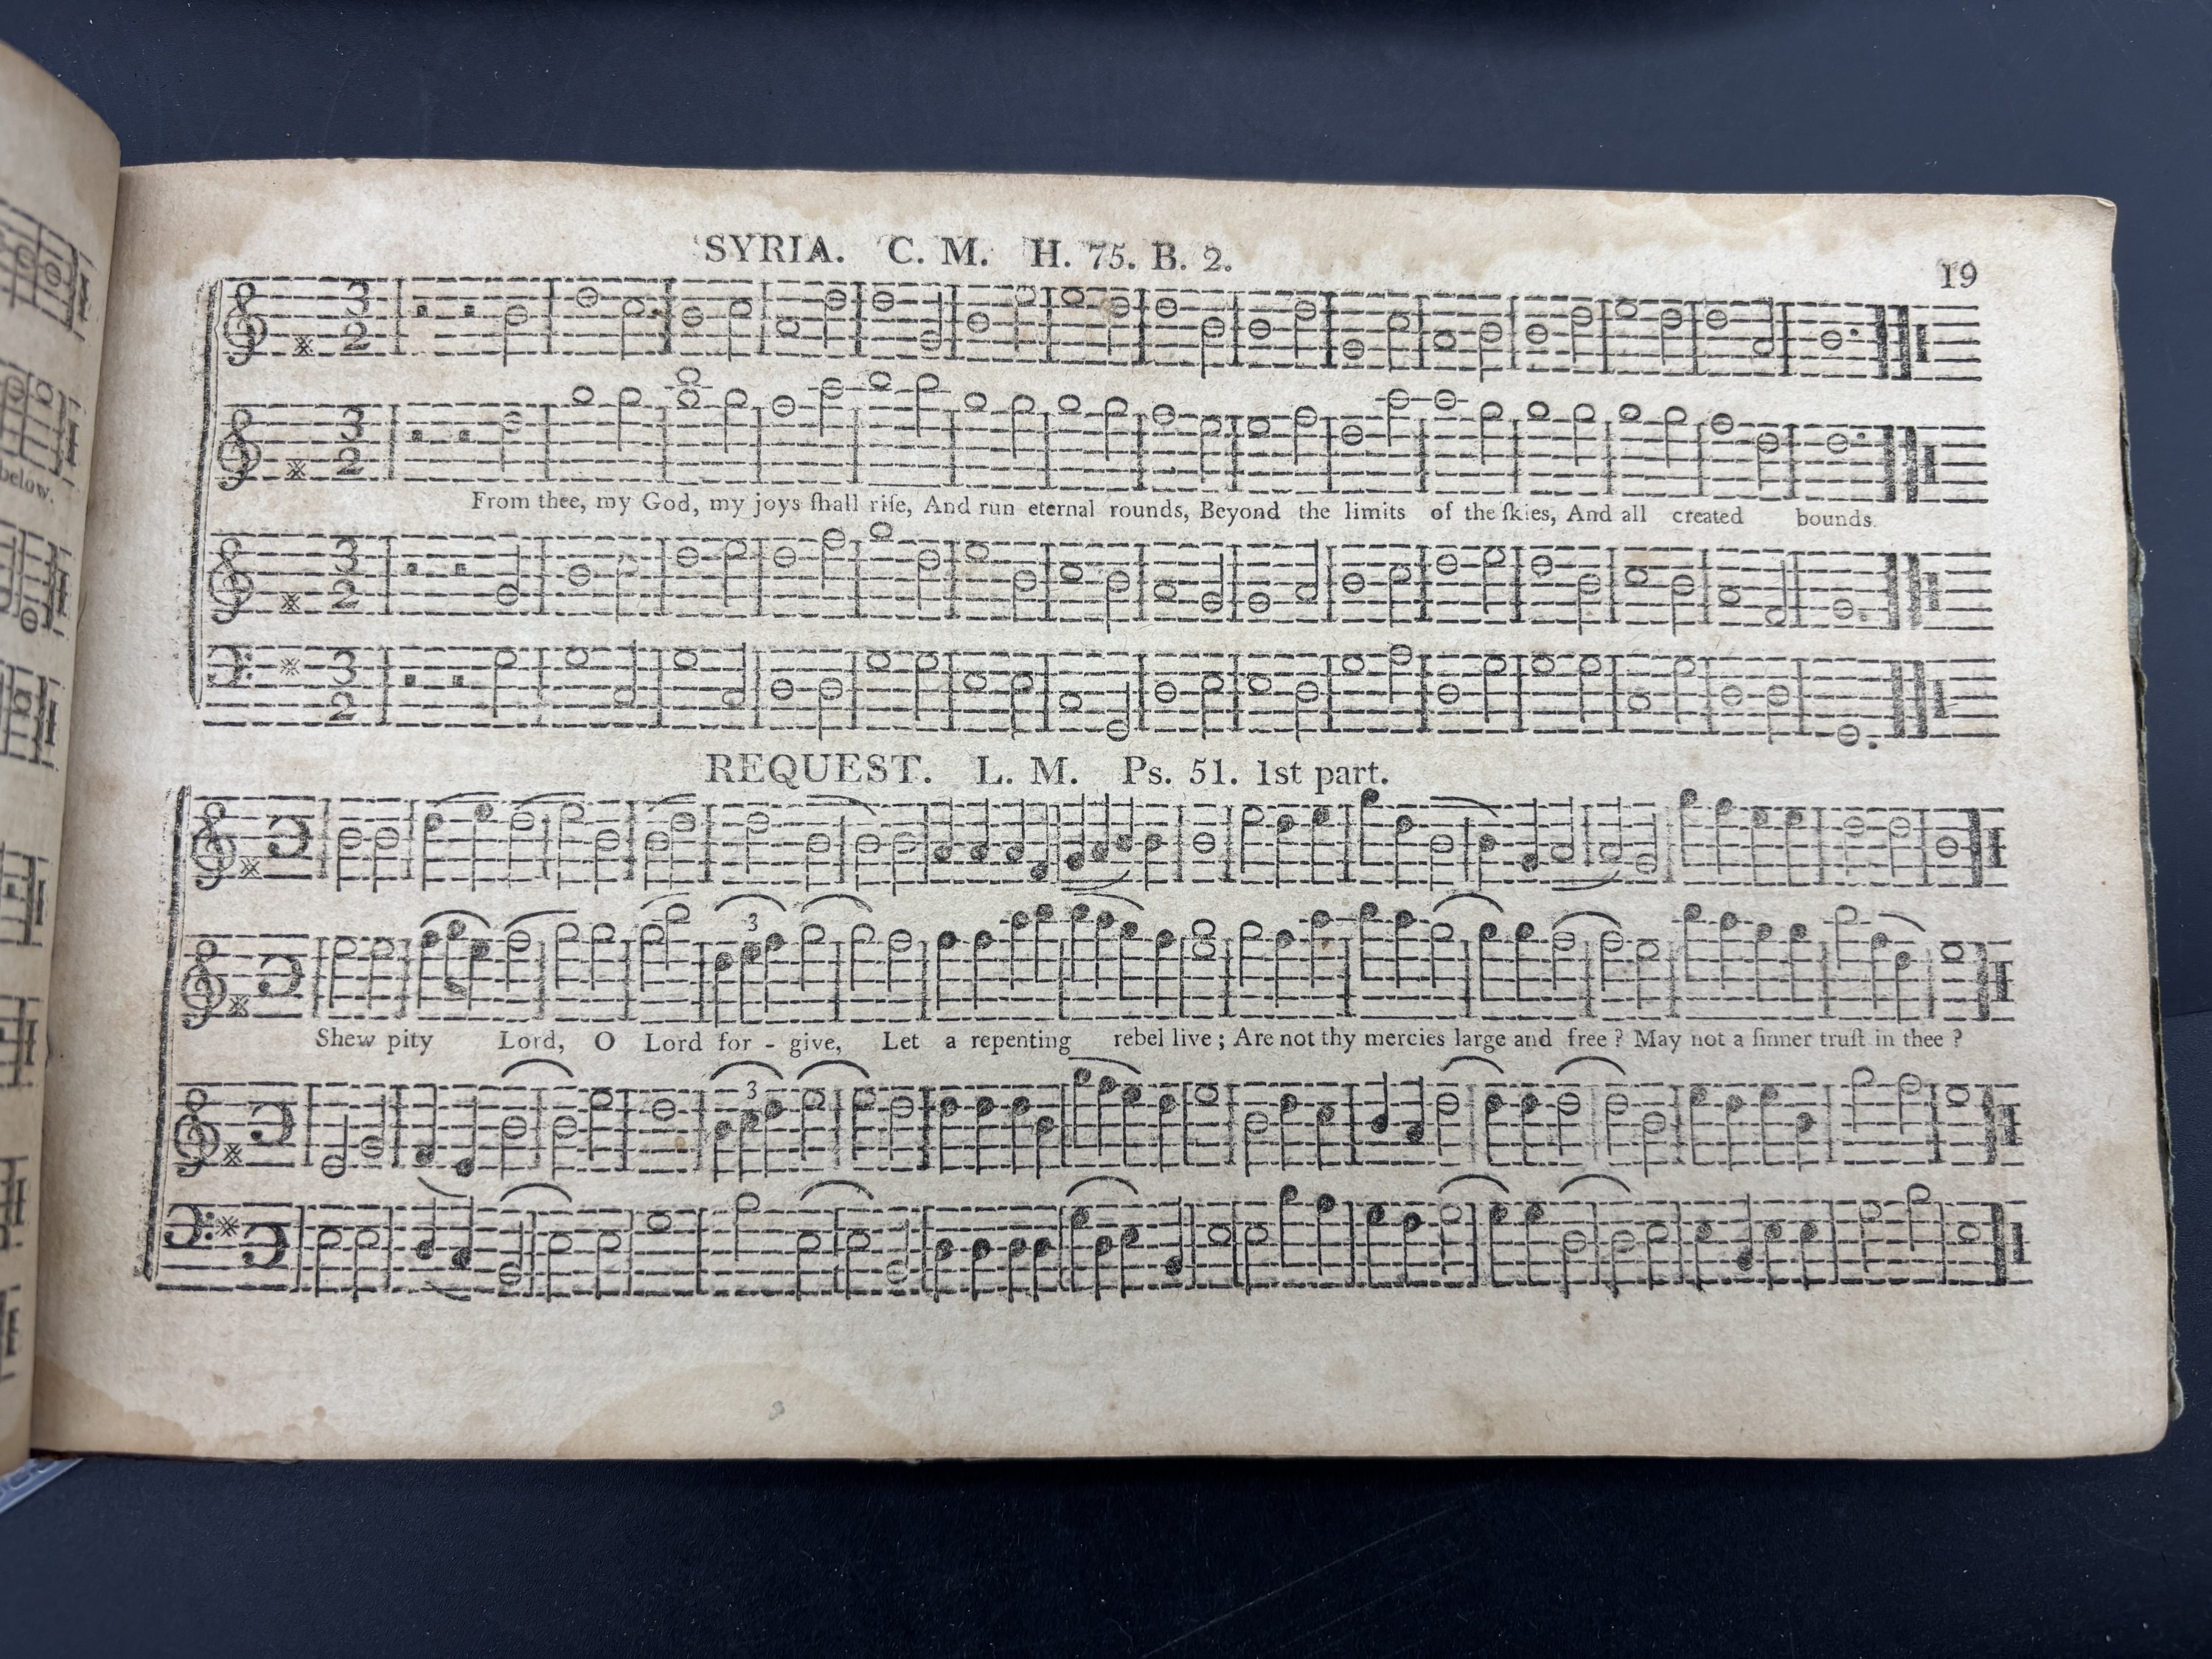 SYRIA. C. M. H. 75. B. 2.
19
3
2
3
2
below.
From thee, my God, my joys ſhall riſe, And run eternal rounds, Beyond the limits of the ſkies, And all created bounds.
3
2
3
2
REQUEST. L. M. Ps. 51. 1st part.
3
Shew pity Lord, O Lord for - give, Let a repenting rebel live ; Are not thy mercies large and free ? May not a ſinner truſt in thee ?
3